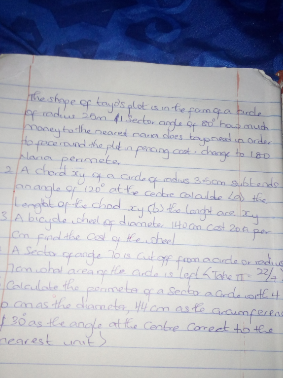 The shape of tayo's plot is in the form of a circle
of radius 20m & sector angle of 80° how much
money to the nearest naira does tayo need in order
to fence round the plot if fencing cost change to 180
Naira perimeter
2. A chord xy of a circle of radius 3.5cm subtends
an angle of 120° at the centre calculate (a) the
length of the chord xy (b) the lenght arc xy
3. A bicycle wheel of diameter 140cm cost 20n per
cm find the cost of the wheel
A Sector of angle 70 is cut off from a circle or radius
7cm what area of the circle is left (Take π = 22/7
Calculate the perimeter of a sector a circle with 14
cm as the diameter, 44cm as the circumference
30° as the angle at the centre correct to the
nearest unit)